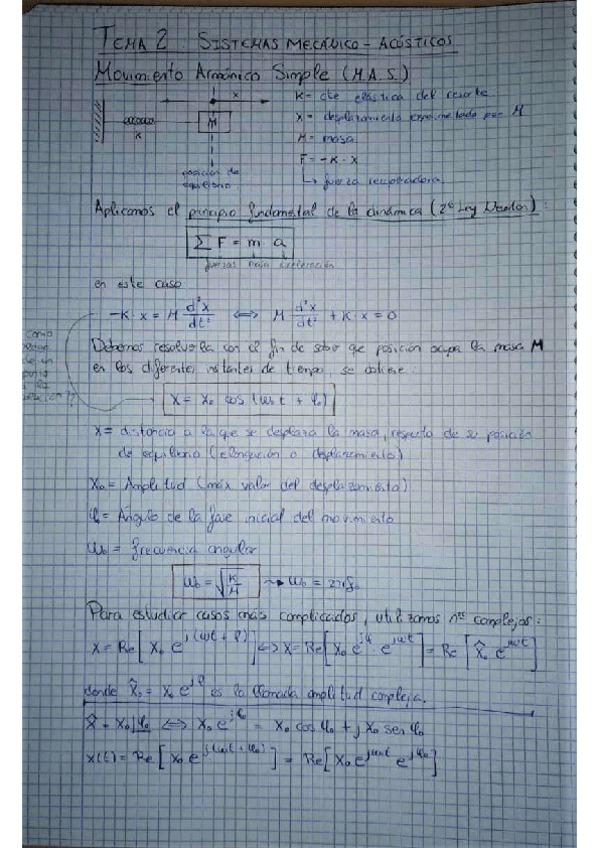 TEMA 2 : SISTEMAS MECÁNICO - ACÚSTICOS
Movimiento Armónico Simple (M.A.S.)
x
K
M
posición de
equilibrio.
K = cte elástica del resorte
X = desplazamiento experimentado por M
M = masa
F = -K · x
↳ fuerza recuperadora.
Aplicamos el principio fundamental de la dinámica (2ª Ley Newton) :
∑ F = m · a
fuerzas masa aceleración
en este caso
-K · x = M d²x/dt² ⟺ M d²x/dt² + K · x = 0
Debemos resolverla con el fin de saber que posición ocupa la masa M
en los diferentes instantes de tiempo, se obtiene :
como
de un
a la
X = X₀ cos (ω₀t + φ₀)
X = distancia a la que se desplaza la masa, respecto de su posición
de equilibrio (elongación o desplazamiento)
X₀ = Amplitud (máx valor del desplazamiento)
φ₀ = Ángulo de la fase inicial del movimiento
ω₀ = frecuencia angular
ω₀ = √(K/M) ⇝ ω₀ = 2πf₀
Para estudiar casos más complicados, utilizamos nºs complejos :
X = Re[X₀ e^j(ωt + φ)] ⟺ X = Re[X₀ e^jφ · e^jωt] = Re[X̂₀ e^jωt]
donde X̂₀ = X₀ e^jφ es la llamada amplitud compleja.
X̂ = X₀|φ₀ ⟺ X₀ e^jφ₀ = X₀ cos φ₀ + j X₀ sen φ₀
X(t) = Re[X₀ e^j(ω₀t + φ₀)] = Re[X₀ e^jω₀t e^jφ₀]